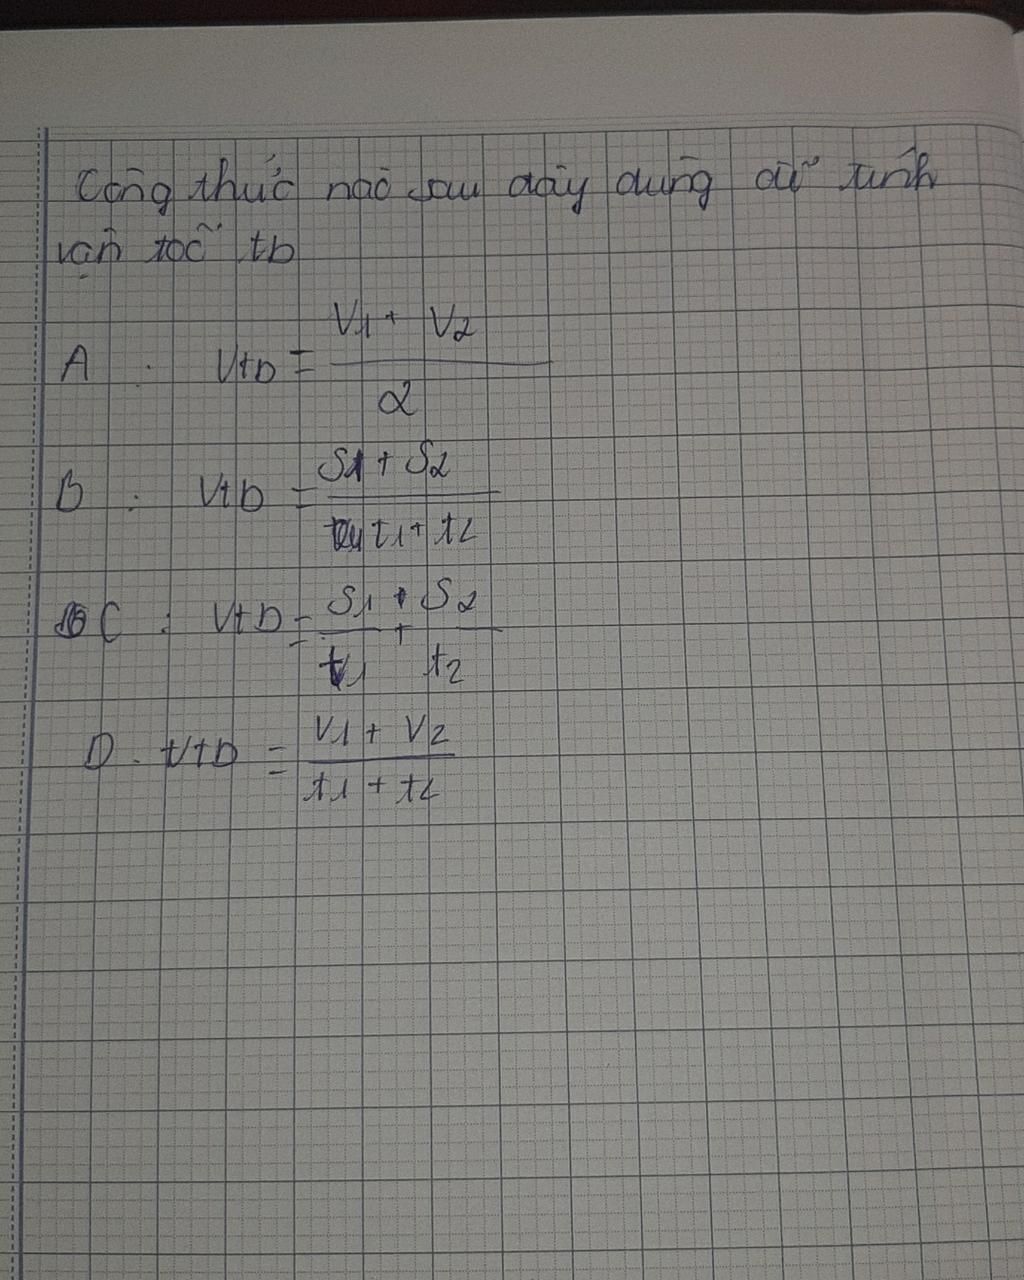 Công thức nào sau đây dùng để tính
vận tốc tb
A . Vtb = V1 + V2 / 2
B : Vtb = S1 + S2 / t1 + t2
C : Vtb = S1 / t1 + S2 / t2
D . Vtb = V1 + V2 / t1 + t2